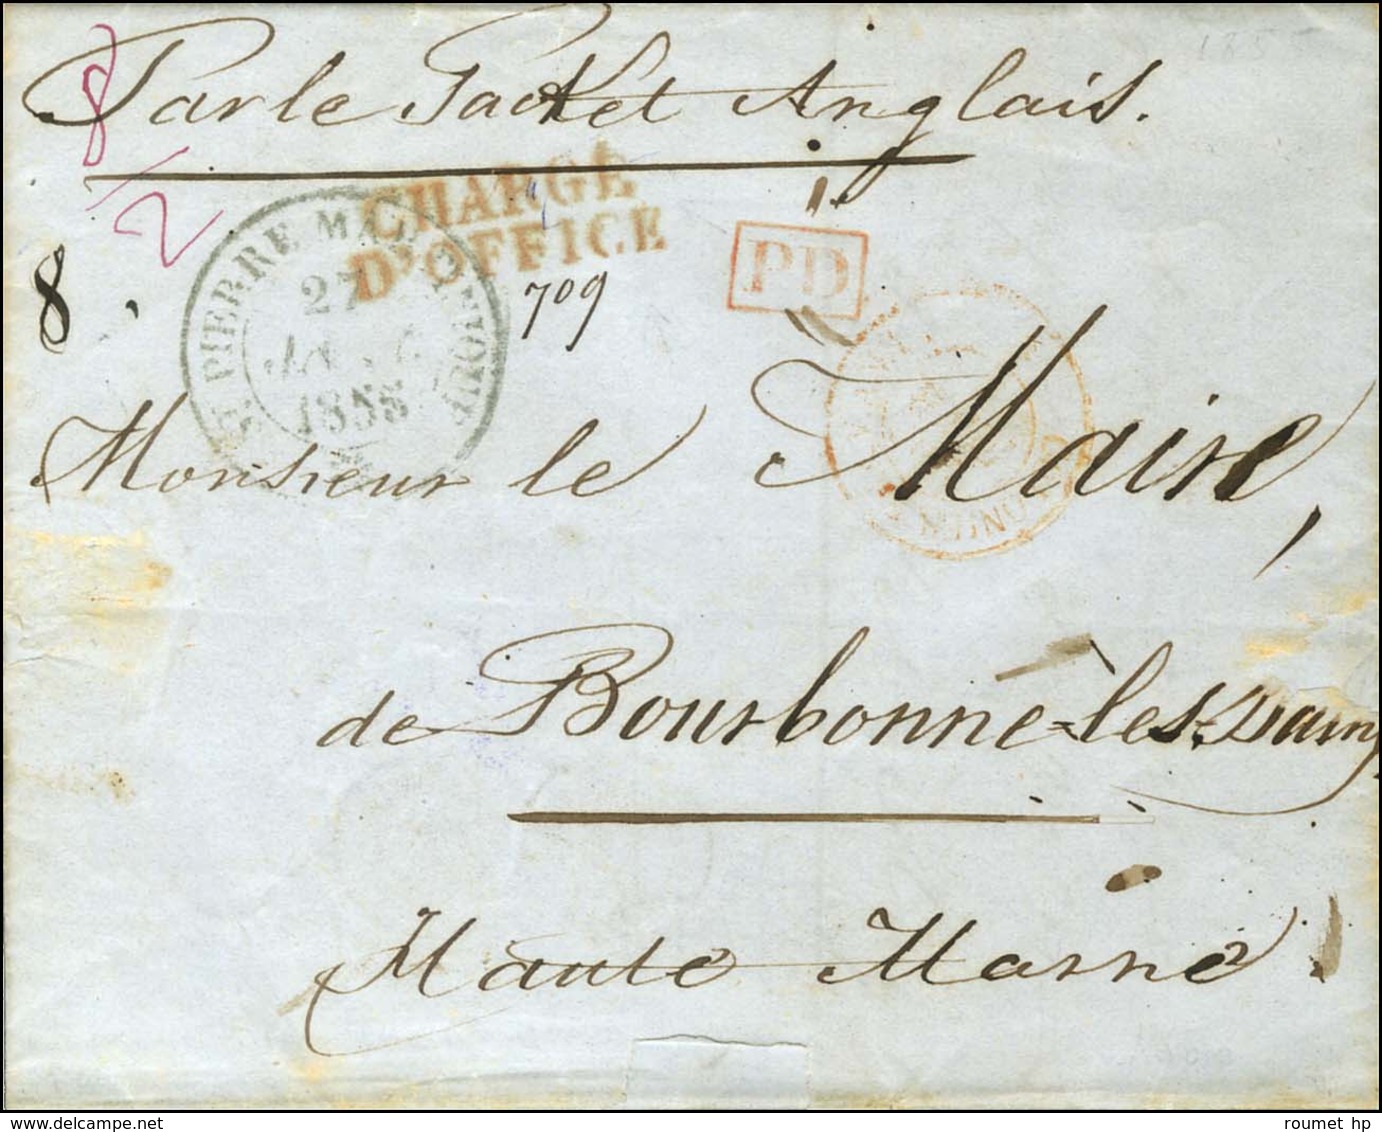 185
8
2
Par le Packet Anglais.
CHARGÉ
D'OFFICE
PD
ST PIERRE MARTINIQUE
27
1855
8.
709
Monsieur le Maire,
de Bourbonne-les-Bains
Haute Marne
roumet hp